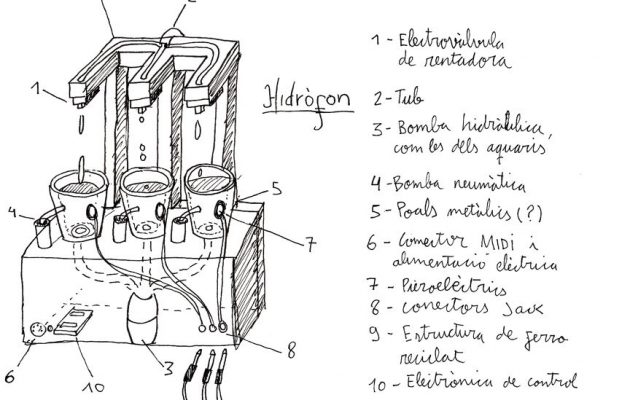 1 - Electrovàlvula
de rentadora
Hidròfon
2 - Tub
3 - Bomba hidràulica,
com les dels aquaris
4 - Bomba neumàtica
5 - Poals metàlics (?)
6 - Comector MIDI i
alimentació elèctrica
7 - Piezoelèctrics
8 - conectors Jack
9 - Estructura de ferro
reciclat
10 - Electrònica de control
1
4
5
7
8
3
10
6